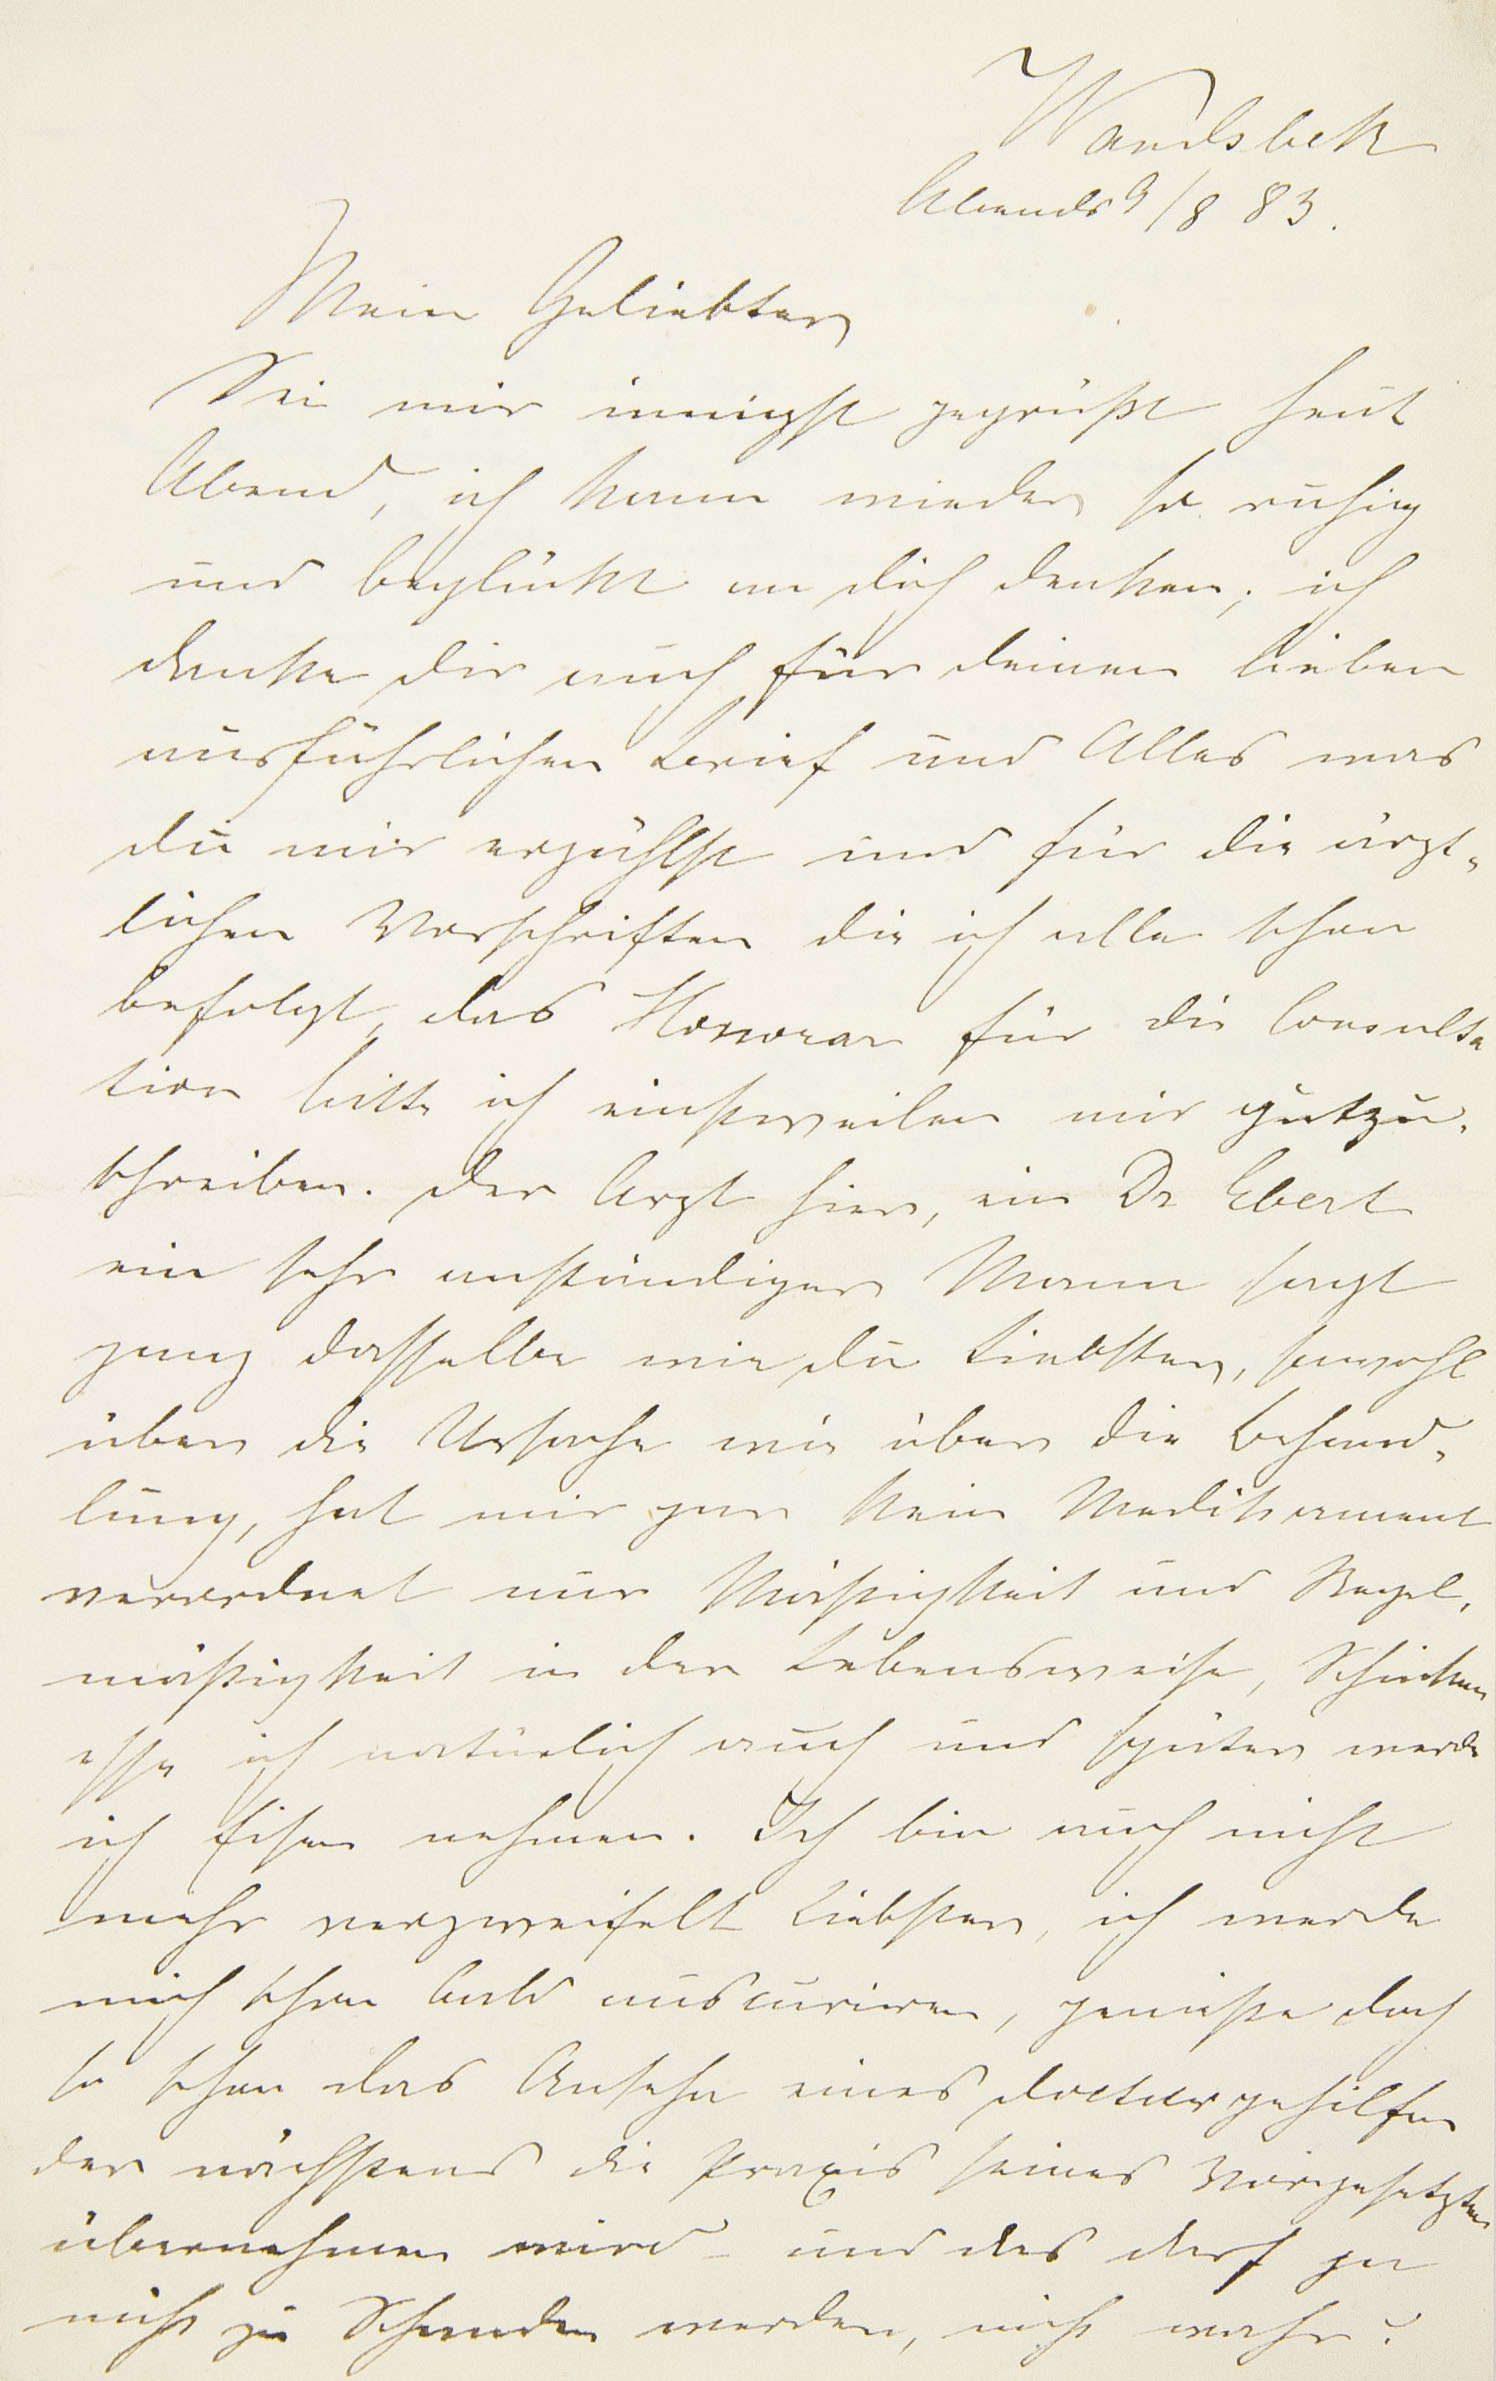 Wandsbek
Abends 9/8 83.
Mein Geliebter
Sei mir innigst gegrüßt heut
Abend, ich kann wieder so ruhig
und beglückt an dich denken; ich
danke dir auch für deinen lieben
ausführlichen Brief und Alles was
du mir erzählst und für die ärzt-
lichen Vorschriften die ich alle schon
befolgt, das Honorar für die Consulta
tion bitte ich einstweilen mir gutzu-
schreiben. Der Arzt hier, ein Dr Ebert
ein sehr anständiger Mann sagt
ganz dasselbe wie du Liebster, sowohl
über die Ursache wie über die Behand-
lung, hat mir gar kein Medikament
verordnet nur Mäßigkeit und Regel-
mäßigkeit in der Lebensweise, Schinken
esse ich natürlich auch und später werde
ich Eisen nehmen. Ich bin auch nicht
mehr verzweifelt Liebster, ich werde
mich schon bald auscuriren, genieße doch
so schon das Ansehn eines Doctorgehilfen
der nächstens die Praxis seines Vorgesetzten
übernehmen wird – und das darf ja
nicht zu Schanden werden, nicht wahr?